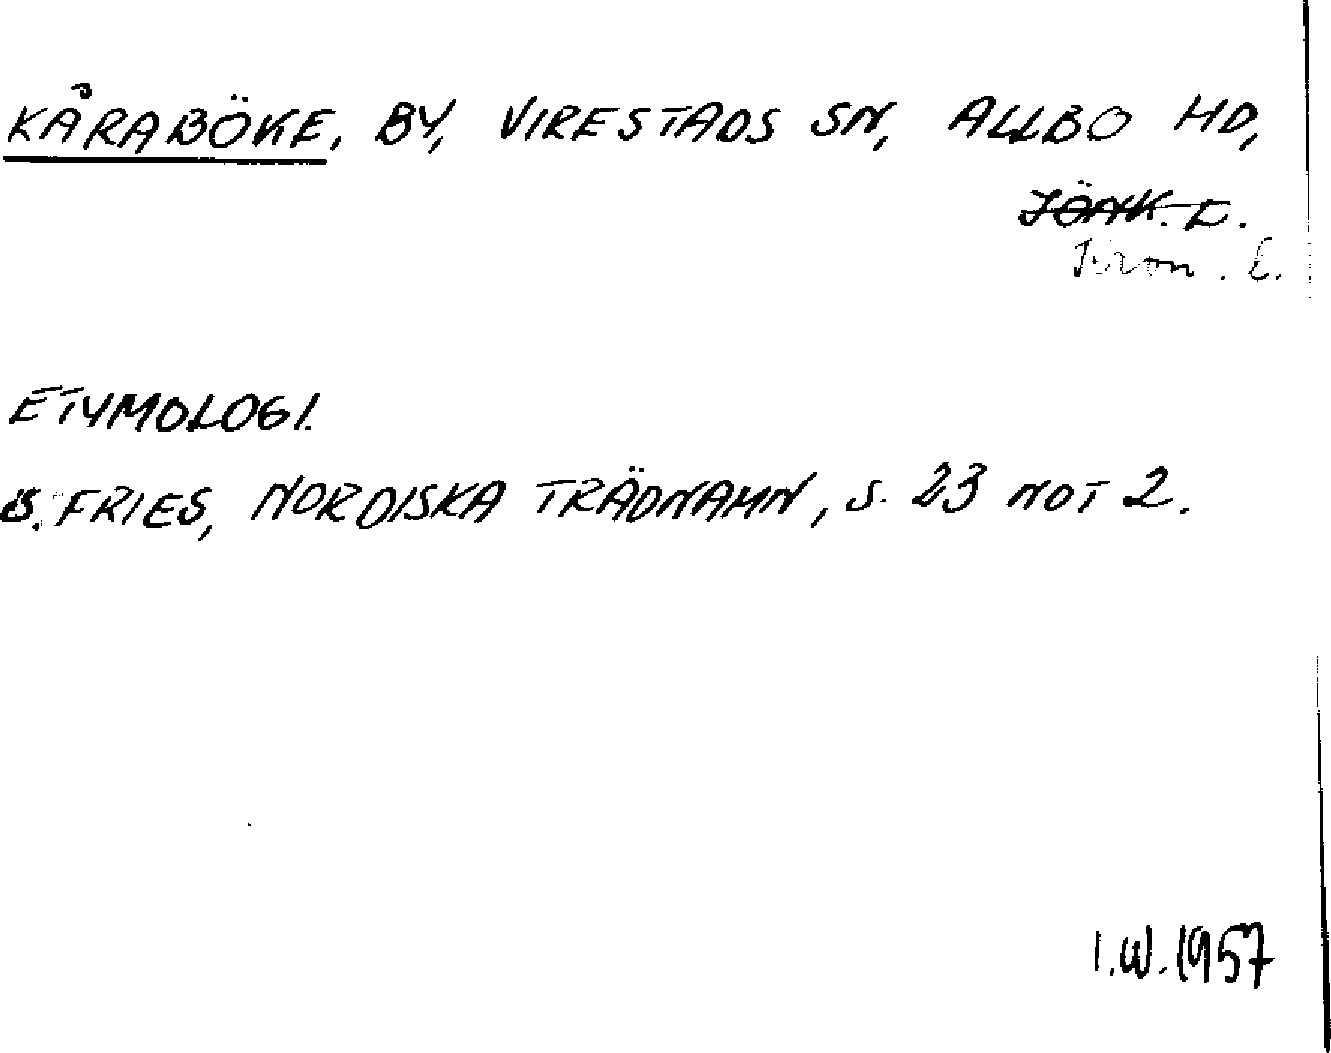 KÅRABÖKE, BY, VIRESTADS SN, ALLBO HD,
JÖNK. L.
Kron. L.
ETYMOLOGI.
S. FRIES, NORDISKA TRÄDNAMN, S. 23 NOT 2.
I.W. 1957